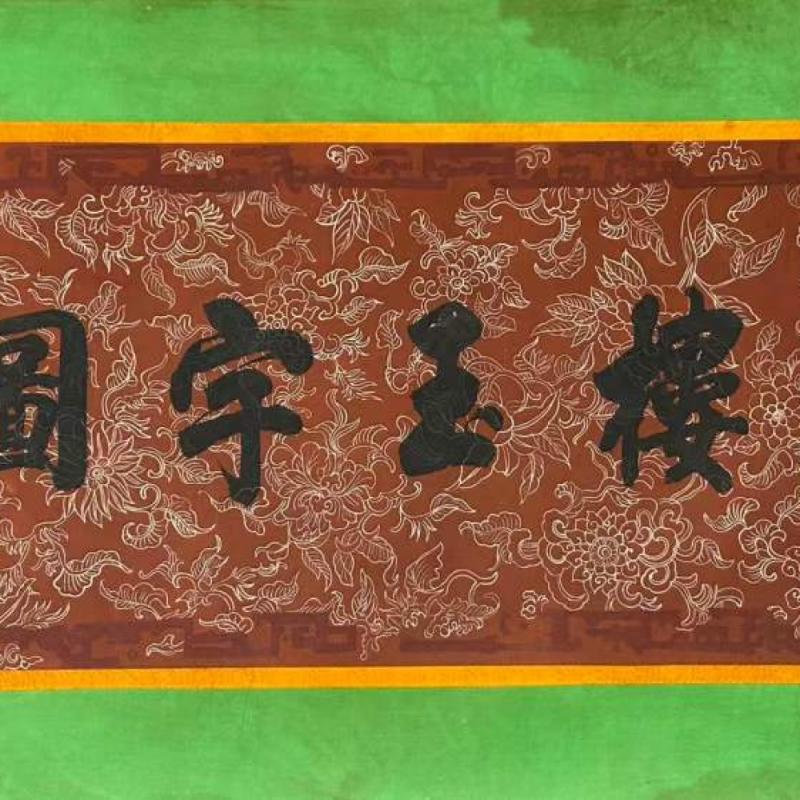 樓玉宇圖